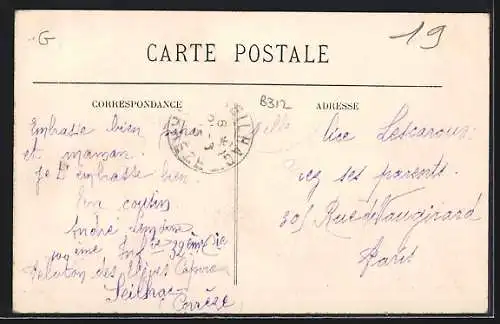 G
19
CARTE POSTALE
CORRESPONDANCE
B312
ADRESSE
SEILHAC
Embrasse bien papa
et maman.
Je t'embrasse bien.
Ton cousin
André
109ème Inf ie 32ème Cie
Peloton des Elèves Capo
Seilhac
Corrèze
Melle Alice Lescarous
chez ses parents.
301 Rue de Vaugirard
Paris